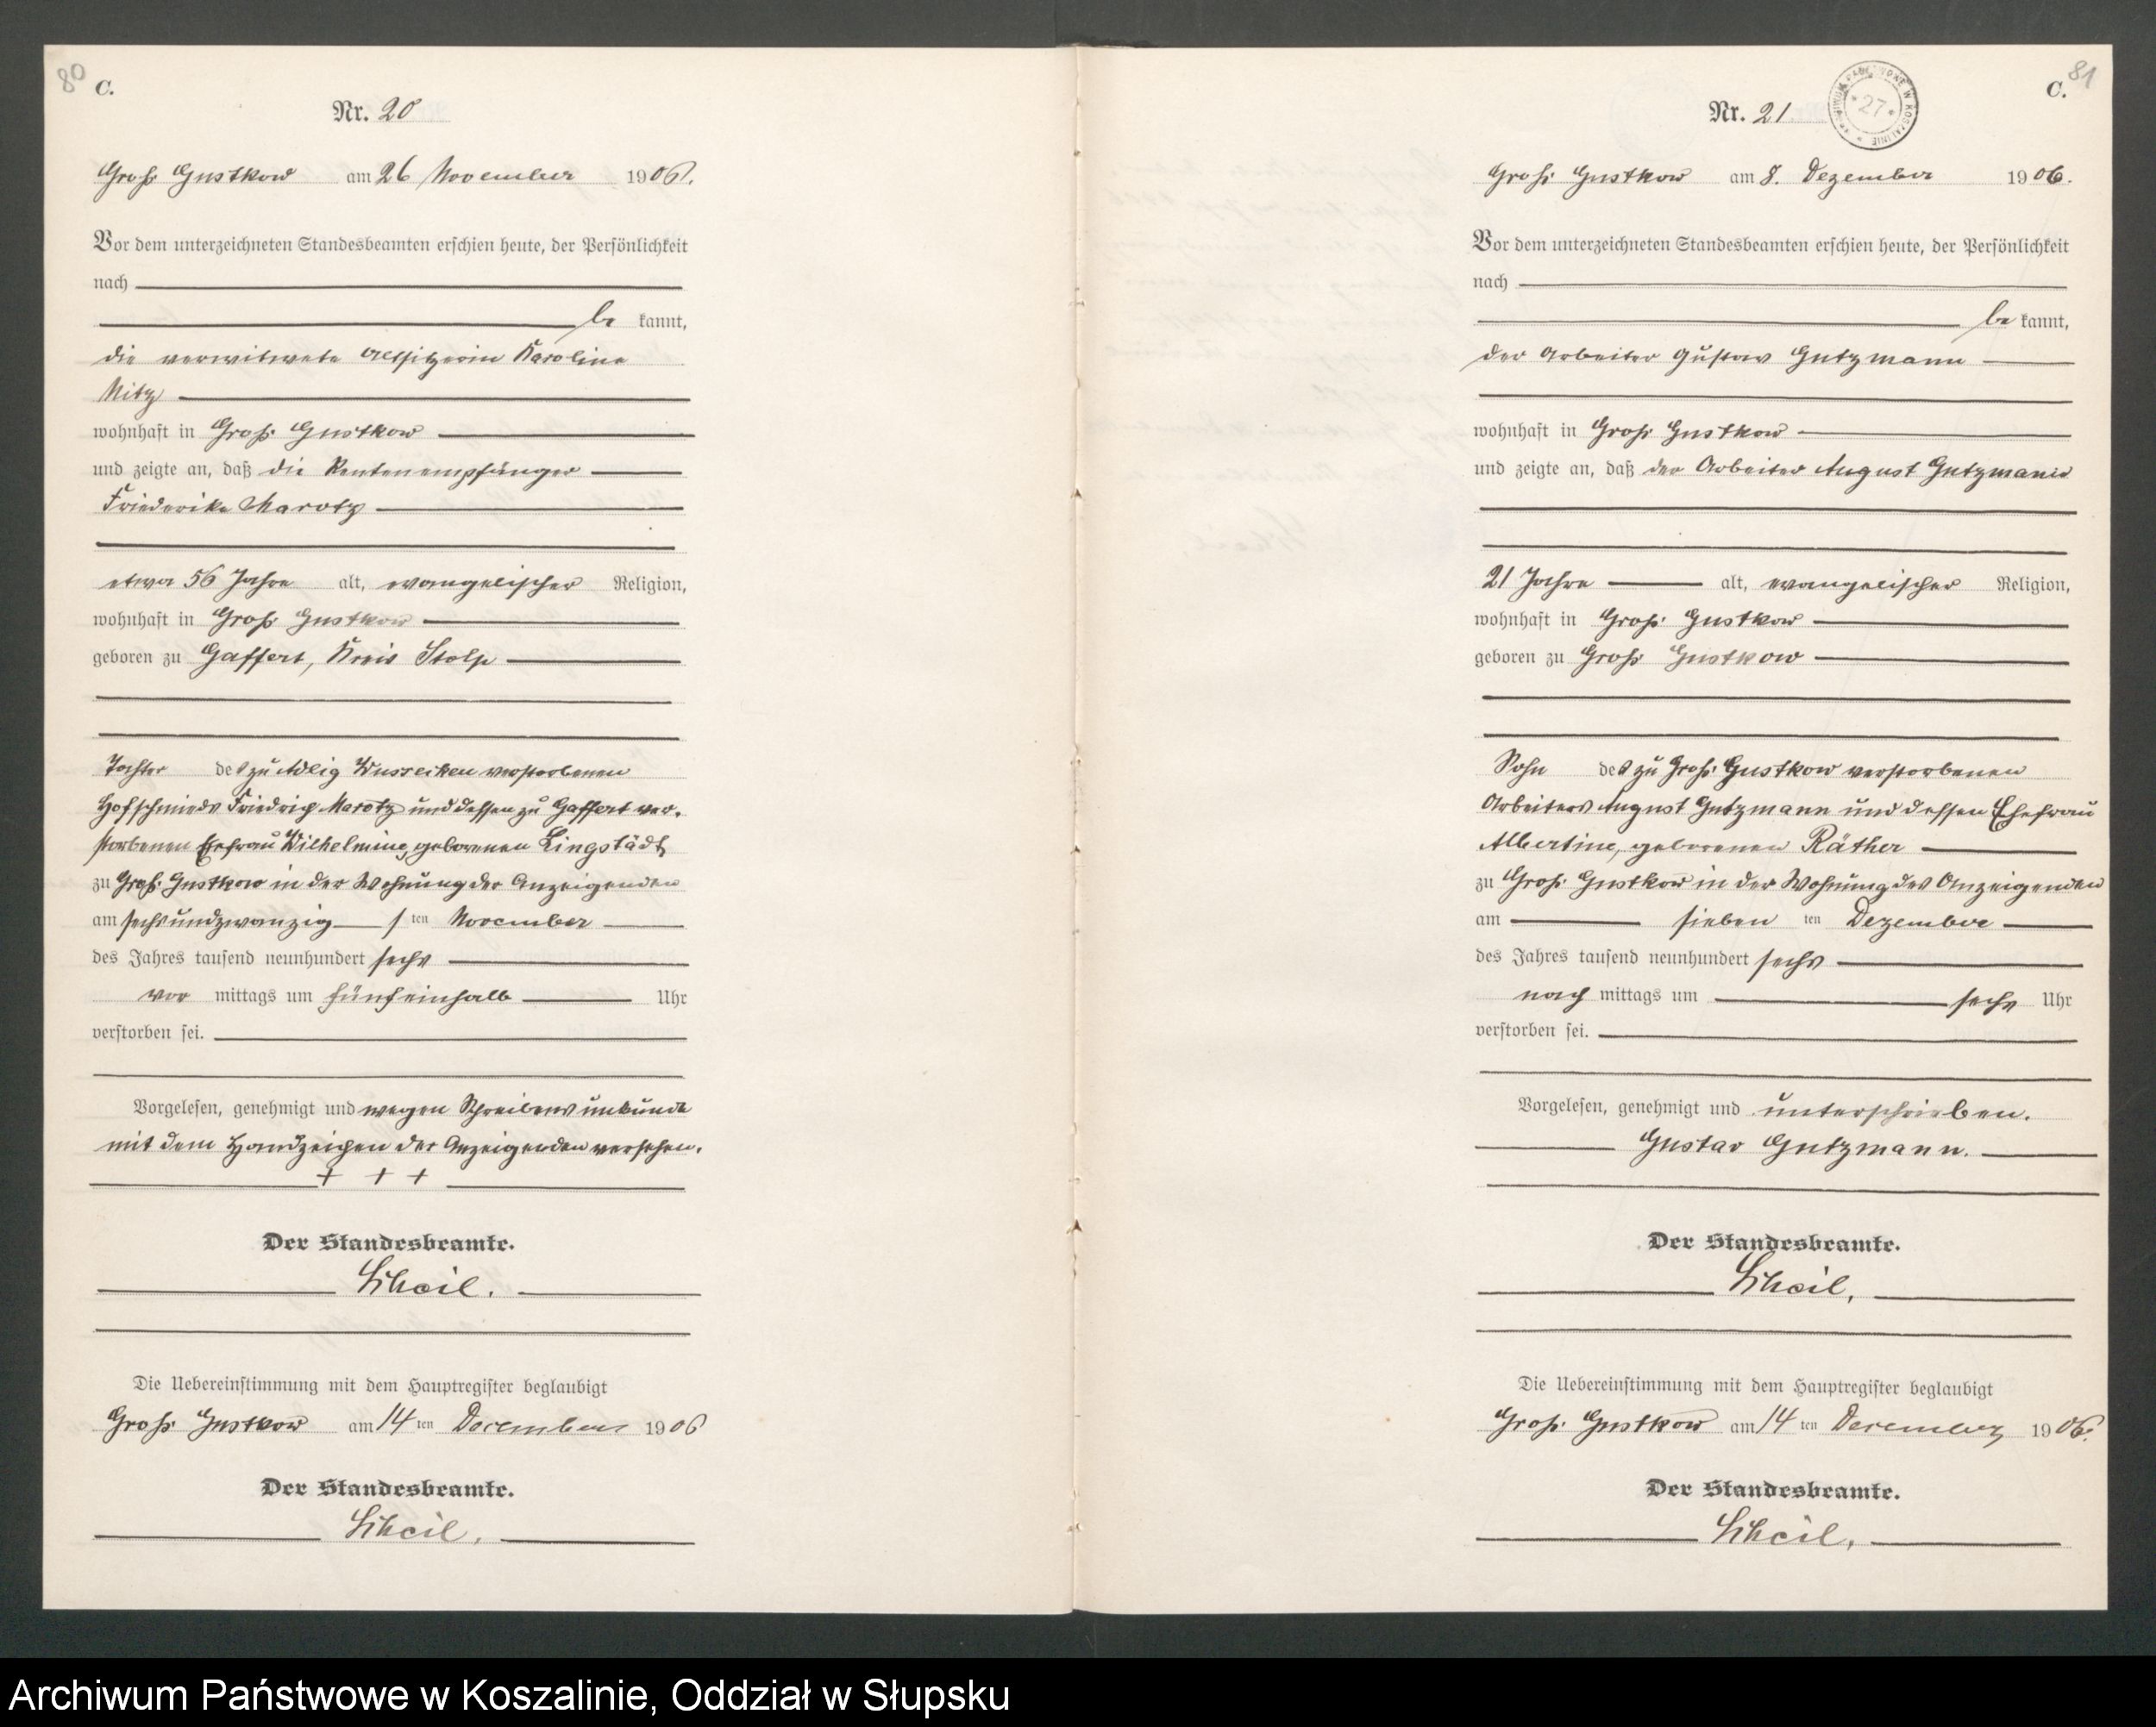 80
C.
Nr. 20
Groß Gustkow am 26 November 1906.
Vor dem unterzeichneten Standesbeamten erschien heute, der Persönlichkeit
nach
be kannt,
die verwitwete Altsitzerin Karoline
Nitz
wohnhaft in Groß Gustkow
und zeigte an, daß die Rentenempfänger
Friederike Marotz
etwa 56 Jahre alt, evangelischer Religion,
wohnhaft in Groß Gustkow
geboren zu Gaffert, Kreis Stolp
Tochter des zu Adlig Wusseken verstorbenen
Hofschmieds Friedrich Marotz und dessen zu Gaffert ver-
storbenen Ehefrau Wilhelmine, geborenen Lingstädt,
zu Groß Gustkow in der Wohnung der Anzeigenden
am sechsundzwanzig sten November
des Jahres tausend neunhundert sechs
vor mittags um fünfeinhalb Uhr
verstorben sei.
Vorgelesen, genehmigt und wegen Schreibensunkunde
mit dem Handzeichen der Anzeigenden versehen.
+ + +
Der Standesbeamte.
Scheil.
Die Uebereinstimmung mit dem Hauptregister beglaubigt
Groß Gustkow am 14 ten December 1906
Der Standesbeamte.
Scheil.
81
C.
Nr. 21
ARCHIWUM PAŃSTWOWE W KOSZALINIE
* 27 *
Groß Gustkow am 8. Dezember 1906.
Vor dem unterzeichneten Standesbeamten erschien heute, der Persönlichkeit
nach
be kannt,
der Arbeiter Gustav Gutzmann
wohnhaft in Groß Gustkow
und zeigte an, daß der Arbeiter August Gutzmann
21 Jahre alt, evangelischer Religion,
wohnhaft in Groß Gustkow
geboren zu Groß Gustkow
Sohn des zu Groß Gustkow verstorbenen
Arbeiters August Gutzmann und dessen Ehefrau
Albertine, geborenen Räther
zu Groß Gustkow in der Wohnung des Anzeigenden
am sieben ten Dezember
des Jahres tausend neunhundert sechs
nach mittags um sechs Uhr
verstorben sei.
Vorgelesen, genehmigt und unterschrieben.
Gustav Gutzmann.
Der Standesbeamte.
Scheil.
Die Uebereinstimmung mit dem Hauptregister beglaubigt
Groß Gustkow am 14 ten December 1906.
Der Standesbeamte.
Scheil.
Archiwum Państwowe w Koszalinie, Oddział w Słupsku